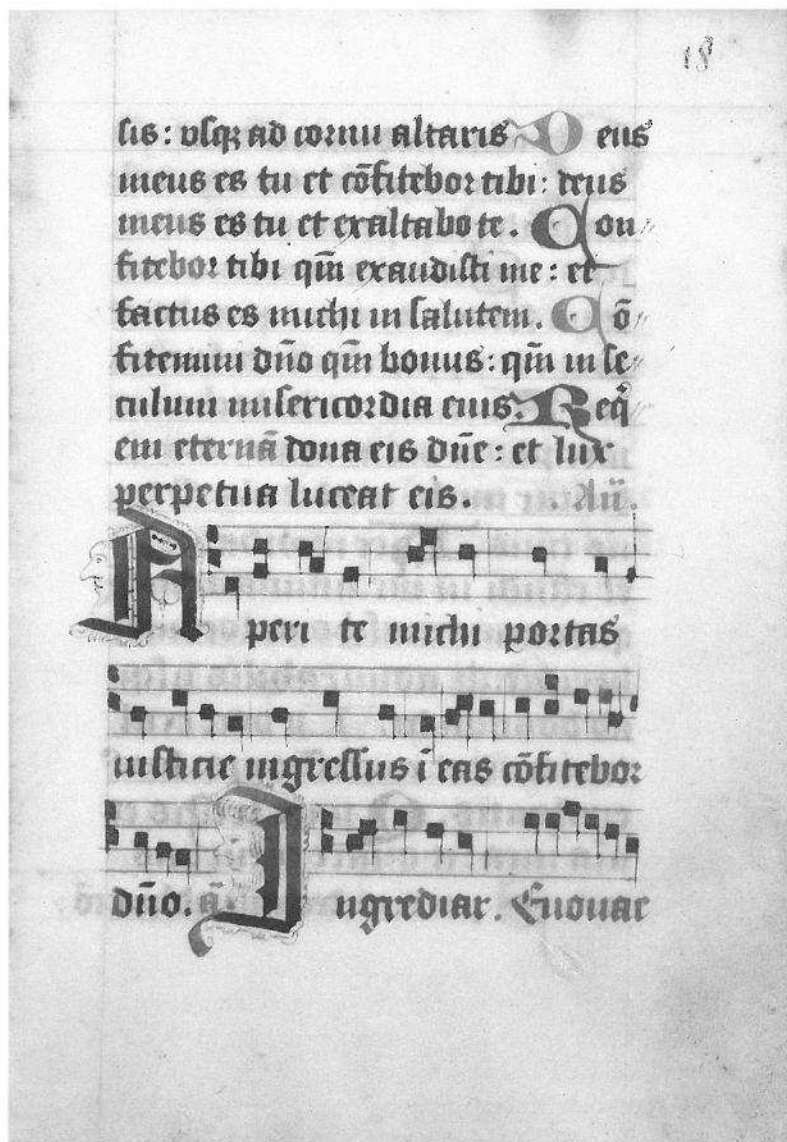 18
sis: vsq; ad cornu altaris Deus
meus es tu et cōfitebor tibi: deus
meus es tu et exaltabo te. Con
fitebor tibi qm̄ exaudisti me: et
factus es michi in salutem. Cō
fitemini dn̄o qm̄ bonus: qm̄ in se
culum misericordia eius. Req̄
em eternā dona eis dn̄e: et lux
perpetua luceat eis. An̄.
Aperi te michi portas
iusticie ingressus ī eas cōfitebor
dn̄o. a. Ingrediar. Euouae